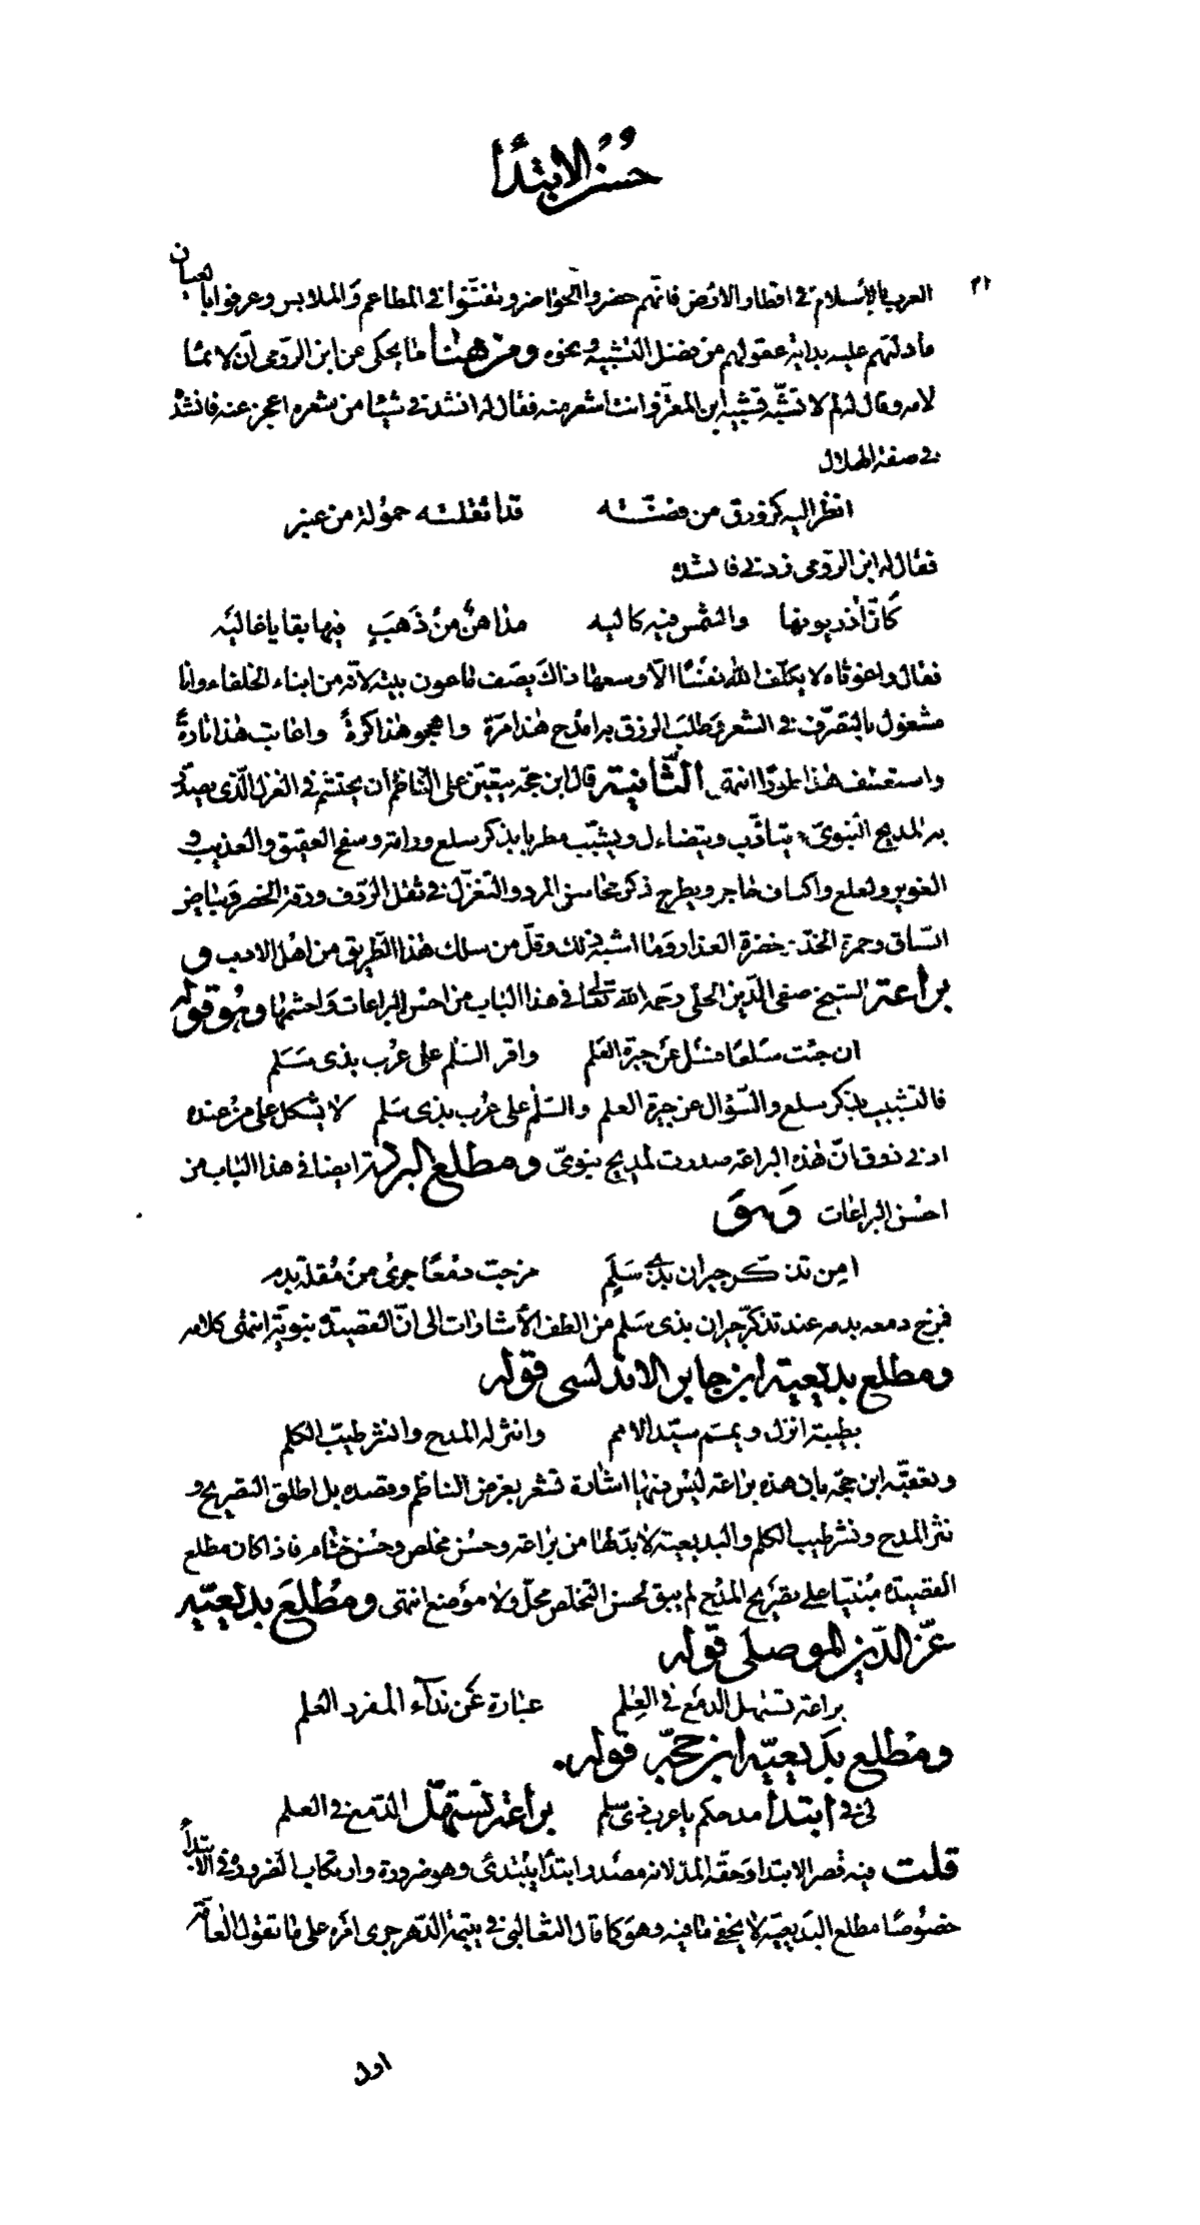 حُسْنُ الابتدأ
٢١
العرب بالإسلام في اقطار الارض فانهم حضروا الحواضر وتفننوا في المطاعم والملابس وعرفوا بالعيان
ما دلتهم عليه بداية عقولهم من فضل التشبيه ونحوه ومن هنا ما يحكى عن ابن الرومى أن لائمًا
لامه وقال له لم لا تشبّه تشبيه ابن المعتز وانت اشعر منه فقال له انشدنى شيئا من شعره اعجز عنه فانشده
في صفة الهلال
انظر اليه كزورق من فضّة قد اثقلته حمولة من عنبر
فقال له ابن الرومى زدنى فانشده
كأنّ آذريونها والشمس فيه كاليه مداهن من ذَهَبٍ فيها بقايا غاليَه
فقال واغوثاه لا يكلّف الله نفسًا الّا وسعها ذاك يصف ماعون بيته لانه من ابناء الخلفاء وانا
مشغول بالتصرّف في الشعر وطلب الرزق به امدح هذا مرة واهجو هذا كرةً واعاتب هذا تارةً
واستعطف هذا طورًا انتهى الثّانية قال ابن حجة يتعيّن على الناظم أن يحتشم في الغزل الّذى يصدّر
به المديح النبويّ ويتأدّب ويتضاءل ويشبّب مطربا بذكر سلع ورامة وسفح العقيق والعذيب و
الغوير ولعلع واكناف حاجر ويطرح ذكر محاسن المرد والتغزّل في ثقل الردف ورقة الخصر وبياض
السّاق وحمرة الخدّ وخضرة العذار وما اشبه ذلك وقلّ من سلك هذا الطّريق من اهل الادب و
براعة الشيخ صفى الدّين الحلى رحمه الله تعالى في هذا الباب من احسن البراعات واحشمها وهو قوله
ان جئت سَلعًا فسَل عن جيرة العَلم واقر السّلم على عُرْب بذى سَلَم
فالتشبيب بذكر سلع والسّؤال عن جيرة العلم والسّلم على عرب بذى سَلم لا يشكل على من عنده
ادنى ذوق انّ هذه البراعة صدرت لمديح نبويّ ومطلع البردة ايضا في هذا الباب من
احسن البراعات وَهوَ
امِن تذكّر جيران بذى سَلَمٍ مزجت دمْعًا جرى منْ مُقلة بدم
فمزج دمعه بدمه عند تذكّر جيران بذى سَلم من الطف الأشارات الى انّ القصيدة نبويّة انتهى كلامه
ومطلع بديعية ابن جابر الاندلسى قوله
بطيبة انزل ويمّم سيّد الامم وانثر له المدح وانشر طيّب الكلم
وتعقبّه ابن حجّه بان هذه براعة ليْس فيها اشارة تشعر بغرض الناظم وقصده بل اطلق التصريح و
نثر المدح ونشر طيب الكلم والبديعية لا بدّ لها من براعة وحسْن مخلص وحسْن ختام فاذا كان مطلع
القصيدة مبْنيّا على تصريح المدْح لم يبق لحسن التخلّص محلّ ولا موْضع انتهى ومُطلَع بديعيّة
عزّ الدّين الموصلى قوله
براعة تستهل الدمع في العلم عبارة عَن ندآء المفرد العَلم
ومطلع بَديعيّة ابن حجّه قوله
لى في ابتدأ مدحكم يا عرب ذى سلم براعة تستهلّ الدّمع في العلم
قلت فيه قصر الابتدا وَحقّه المد لانه مصْدر ابتدأ يبْتدئ وهو ضرورة وارتكاب الضرورة في الابتدأ
خصُوصًا مطلع البديعيّة لا يخفى ما فيه وهوَ كما قال الثعالبى في يتيمة الدّهر جرى امْره على ما تقول العامّة
اول